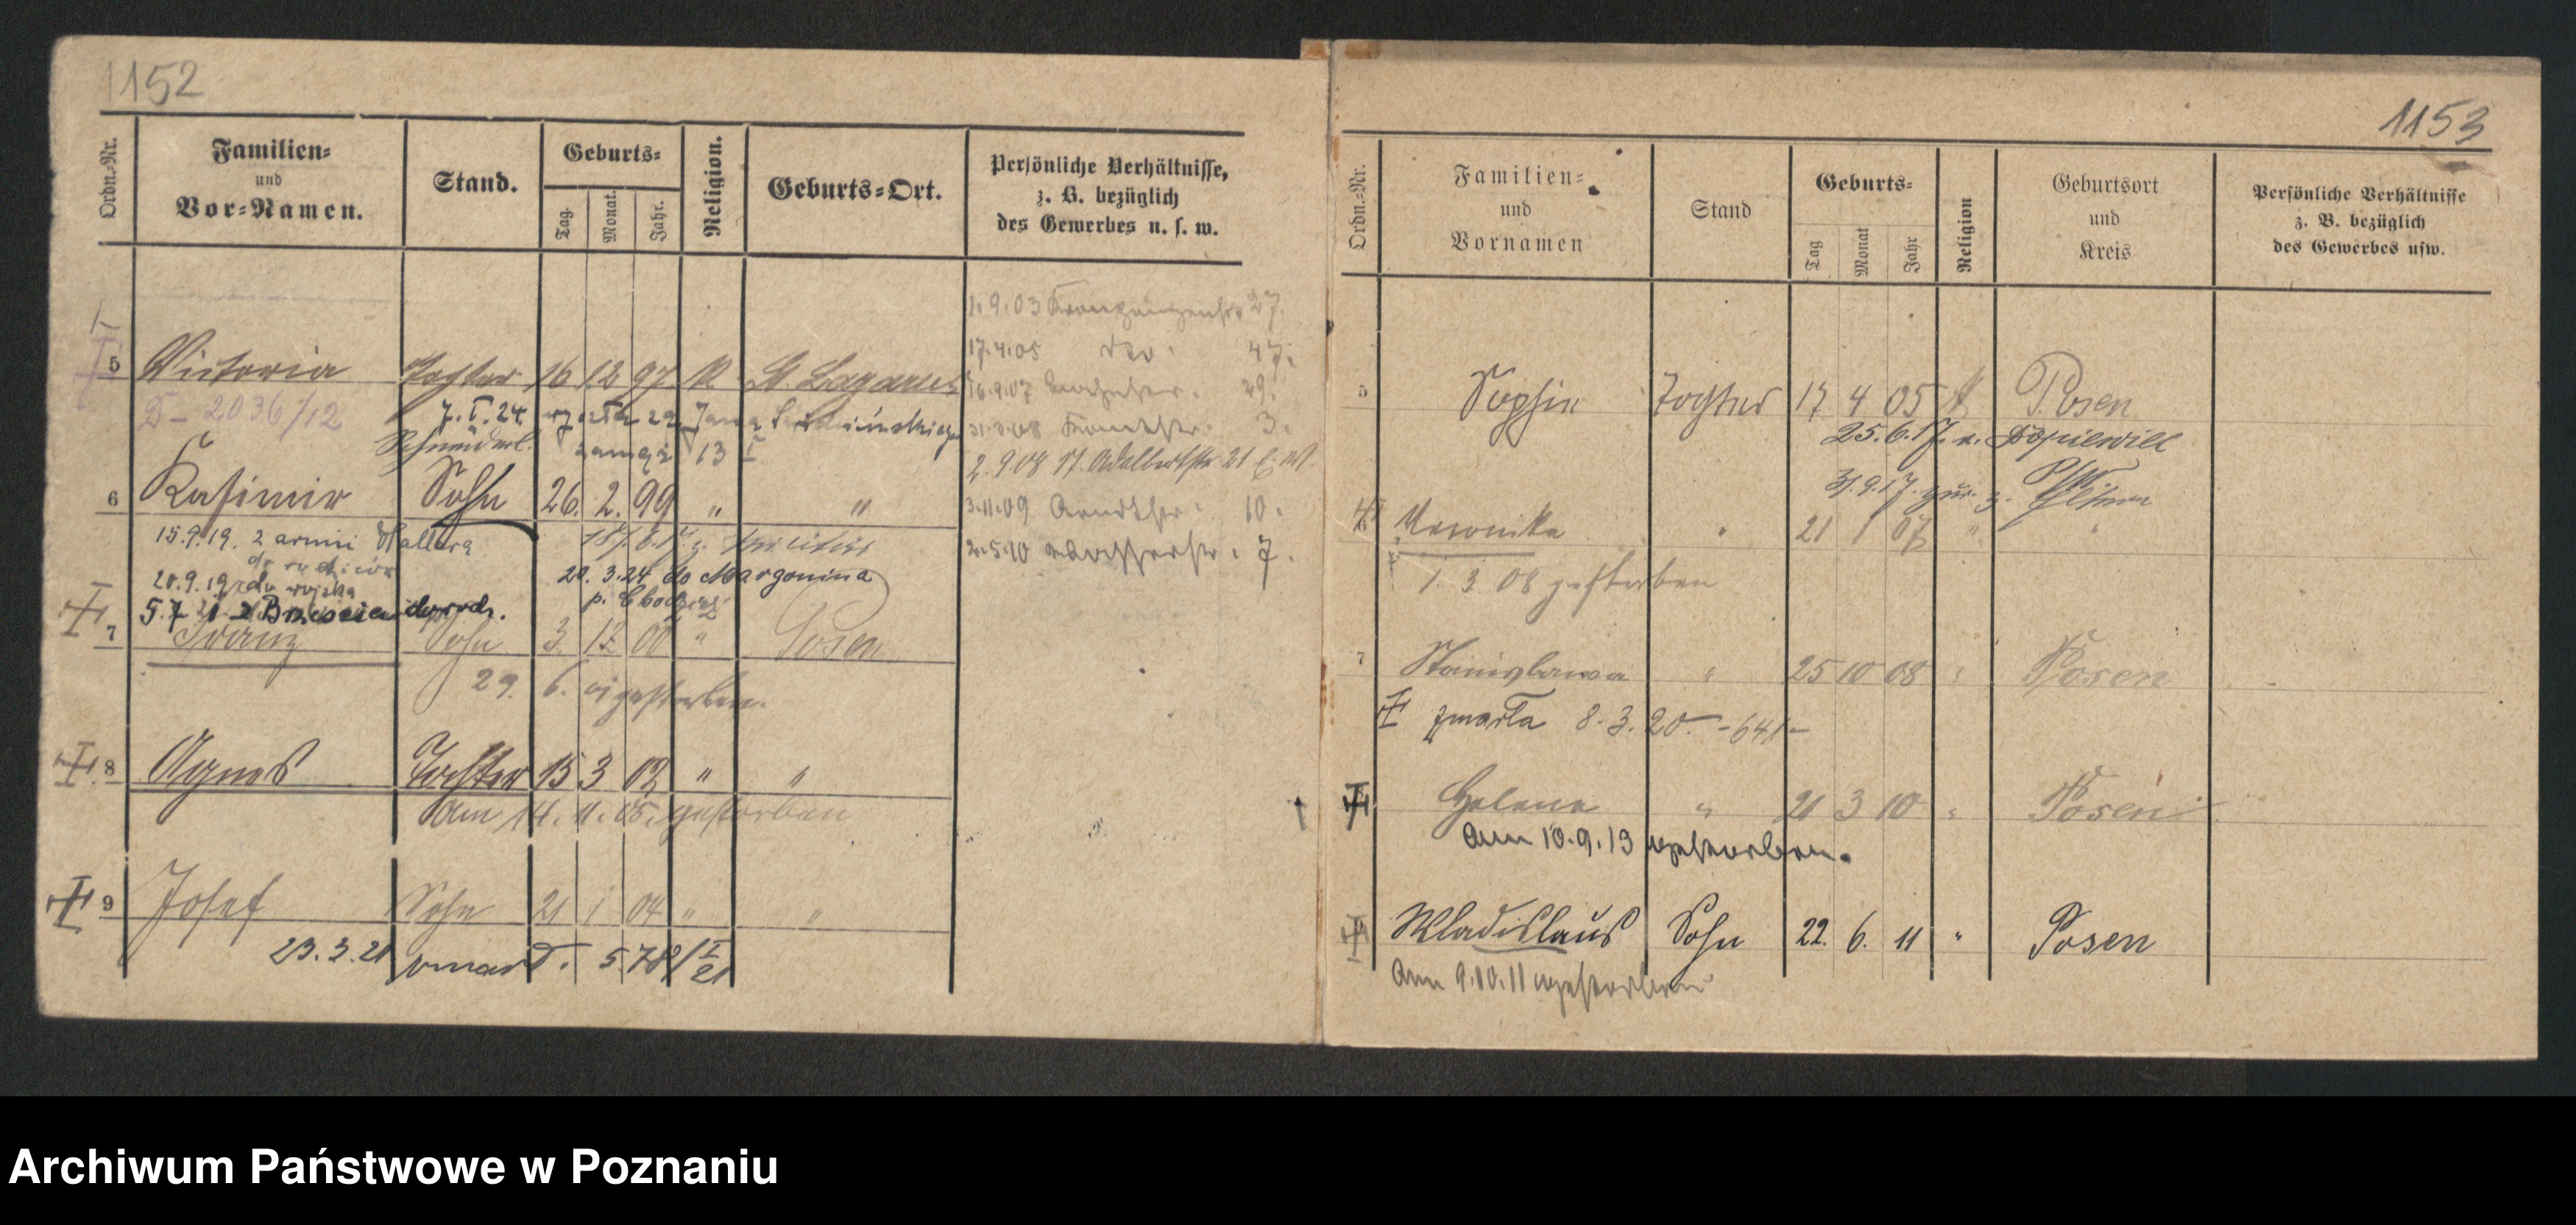 1152
Ordn.-Nr.
Familien-
und
Vor-Namen.
Stand.
Geburts-
Tag.
Monat.
Jahr.
Religion.
Geburts-Ort.
Persönliche Verhältnisse,
z. B. bezüglich
des Gewerbes u. s. w.
1.9.03 27.
17.4.05 dto. 47.
5 Victoria Tochter 16 12 97 K St. Lazarus
16.9.07 29.
D - 2036/12
7.I.24. Jana
31.3.08 3.
13 I
2.9.08 St. Adalbertstr 21
6 Kasimir Sohn 26. 2. 99 " "
3.11.09 Arndtstr. 10.
15.9.19. 2 armii Hallera
do rodziców
7.
20.9.19 do wojska
20. 3.24 do Margonina
p. Chodzież
5.7 21 z Brześcia do rodz.
7 Franz Sohn 3. 12 00 " Posen
29. 6. 01 gestorben.
8 Agnes Tochter 15 3 02 " "
Am 14. 11. 05. gestorben
9 Josef Sohn 21 1 04 " "
23.3.21 zmarł. 578/I 21
1153
Ordn.-Nr.
Familien-
und
Vornamen
Stand
Geburts-
Tag
Monat
Jahr
Religion
Geburtsort
und
Kreis
Persönliche Verhältnisse
z. B. bezüglich
des Gewerbes usw.
5 Sophie Tochter 17 4 05 K Posen
25.6.17. n. Dopiewitz
31.9.17. zur. z. Eltern
6 Veronika " 21 1 07 " "
1. 3 08 gestorben
7 Stanislawa " 25 10 08 " Posen
zmarła 8.3.20. -641-
8 Helene " 21 3 10 " Posen
Am 10.9.13 gestorben.
9 Wladislaus Sohn 22. 6. 11 " Posen
Am 9.10.11 gestorben
Archiwum Państwowe w Poznaniu